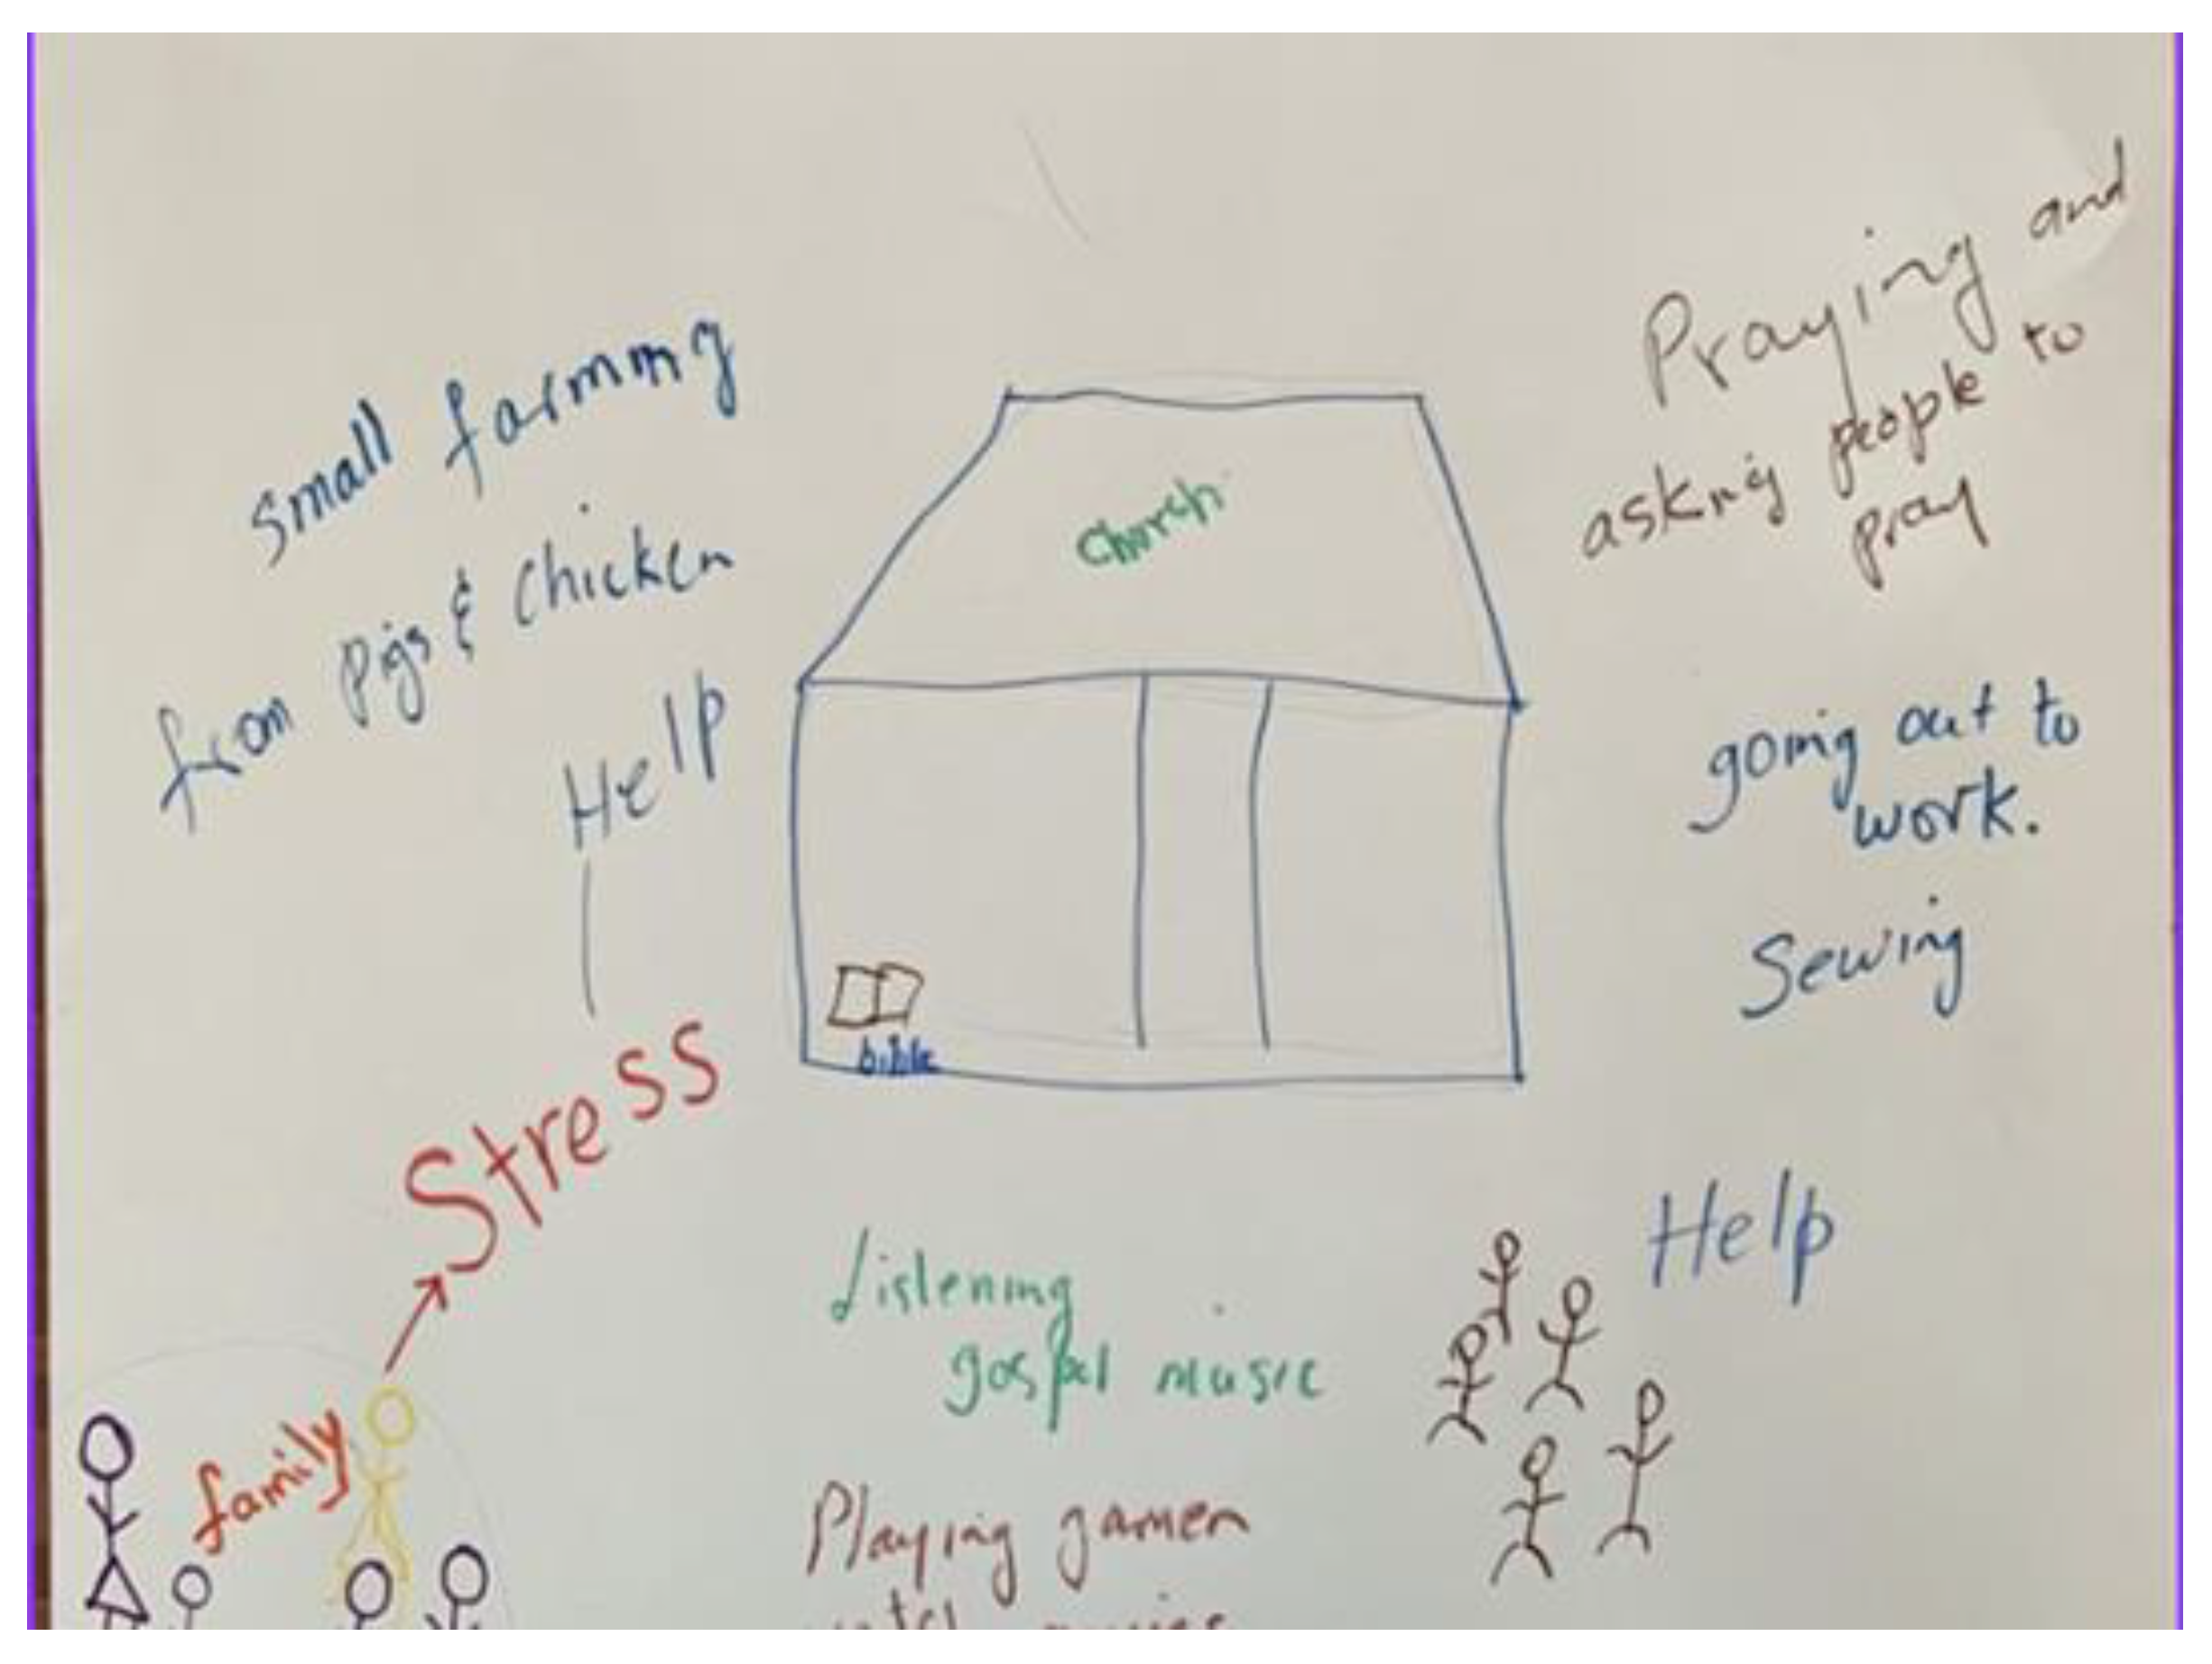 small farming
from Pigs & Chicken
Help
Stress
family
Church
bible
Praying and
asking people to
pray
going out to
work.
Sewing
Help
Listening
gospel music
Playing games